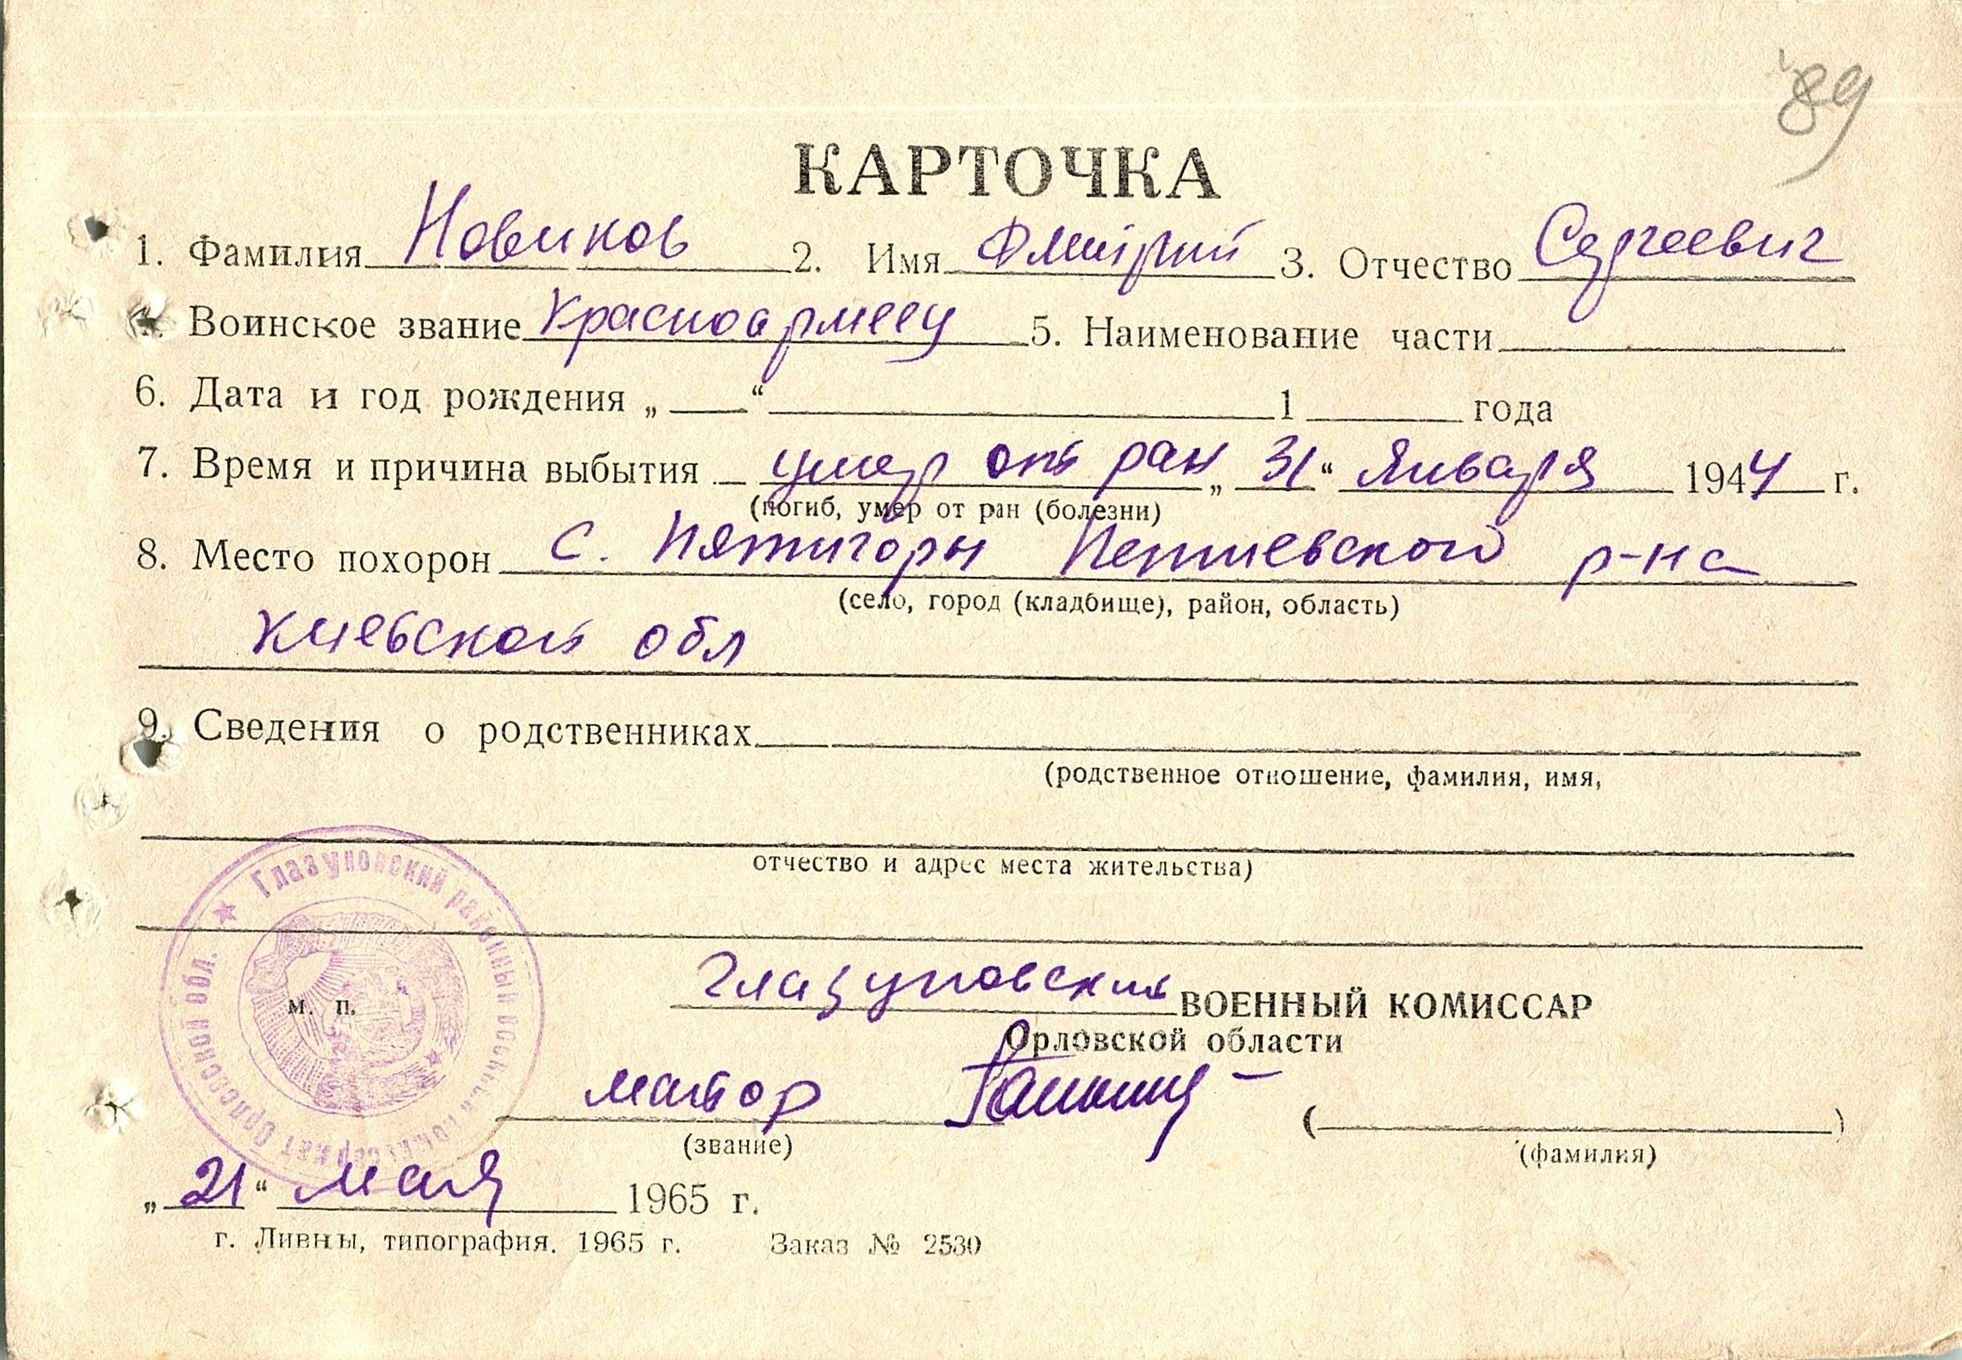 89
КАРТОЧКА
1. Фамилия Новиков 2. Имя Дмитрий 3. Отчество Сергеевич
4. Воинское звание Красноармеец 5. Наименование части
6. Дата и год рождения „ “ 1 года
7. Время и причина выбытия умер от ран „ 31 “ Января 1944 г.
(погиб, умер от ран (болезни)
8. Место похорон с. Пятигоры Петиевского р-на
(село, город (кладбище), район, область)
Киевской обл
9. Сведения о родственниках
(родственное отношение, фамилия, имя,
отчество и адрес места жительства)
Глазуновский районный военный комиссариат Орловской обл.
М. П.
Глазуновский ВОЕННЫЙ КОМИССАР
Орловской области
майор
(звание) (фамилия)
„ 21 “ мая 1965 г.
г. Ливны, типография. 1965 г. Заказ № 2530